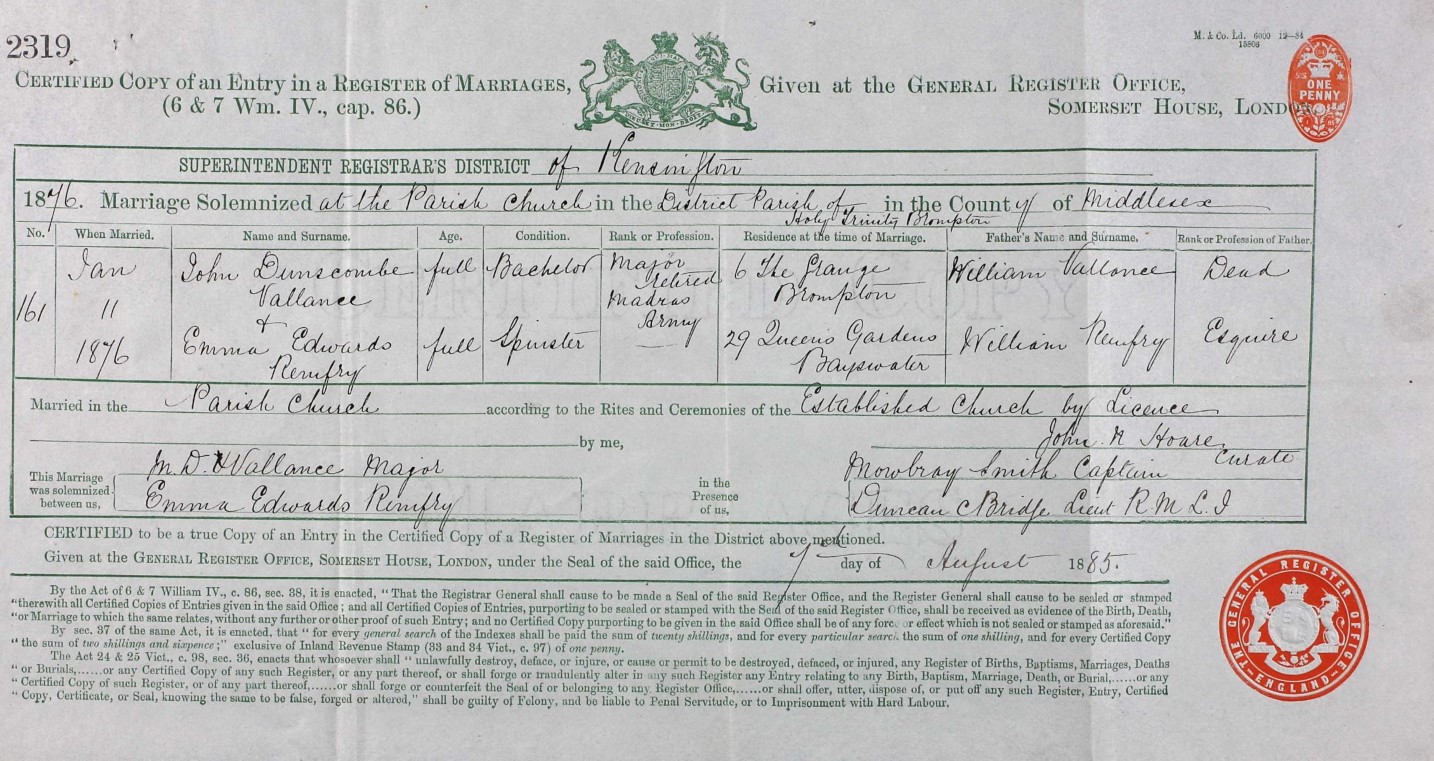 2319
M. & Co. Ld. 6000 12—84
15806
CERTIFIED COPY of an Entry in a REGISTER OF MARRIAGES,
(6 & 7 Wm. IV., cap. 86.)
Given at the GENERAL REGISTER OFFICE,
SOMERSET HOUSE, LONDON
ONE
PENNY
SUPERINTENDENT REGISTRAR'S DISTRICT of Kensington
1876. Marriage Solemnized at the Parish Church in the District Parish of in the County of Middlesex
Holy Trinity Brompton
No. When Married. Name and Surname. Age. Condition. Rank or Profession. Residence at the time of Marriage. Father's Name and Surname. Rank or Profession of Father.
Jan John Dunscombe full Bachelor Major 6 The Grange William Vallance Dead
retired
161 11 Vallance Madras Brompton
& Army
1876 Emma Edwards full Spinster — 29 Queens Gardens William Remfry Esquire
Remfry Bayswater
Married in the Parish Church according to the Rites and Ceremonies of the Established Church by Licence
by me, John N Hoare
Curate
This Marriage
was solemnized
between us,
M. D. Vallance Major
Emma Edwards Remfry
in the
Presence
of us,
Mowbray Smith Captain
Duncan C Bridge Lieut R. M L. I
CERTIFIED to be a true Copy of an Entry in the Certified Copy of a Register of Marriages in the District above mentioned.
Given at the GENERAL REGISTER OFFICE, SOMERSET HOUSE, LONDON, under the Seal of the said Office, the 7th day of August 1885.
By the Act of 6 & 7 William IV., c. 86, sec. 38, it is enacted, "That the Registrar General shall cause to be made a Seal of the said Register Office, and the Register General shall cause to be sealed or stamped
"therewith all Certified Copies of Entries given in the said Office; and all Certified Copies of Entries, purporting to be sealed or stamped with the Seal of the said Register Office, shall be received as evidence of the Birth, Death,
"or Marriage to which the same relates, without any further or other proof of such Entry; and no Certified Copy purporting to be given in the said Office shall be of any force or effect which is not sealed or stamped as aforesaid."
By sec. 37 of the same Act, it is enacted, that "for every general search of the Indexes shall be paid the sum of twenty shillings, and for every particular search the sum of one shilling, and for every Certified Copy
"the sum of two shillings and sixpence;" exclusive of Inland Revenue Stamp (33 and 34 Vict., c. 97) of one penny.
The Act 24 & 25 Vict., c. 98, sec. 36, enacts that whosoever shall "unlawfully destroy, deface, or injure, or cause or permit to be destroyed, defaced, or injured, any Register of Births, Baptisms, Marriages, Deaths
"or Burials,......or any Certified Copy of any such Register, or any part thereof, or shall forge or fraudulently alter in any such Register any Entry relating to any Birth, Baptism, Marriage, Death, or Burial,......or any
"Certified Copy of such Register, or of any part thereof,......or shall forge or counterfeit the Seal of or belonging to any Register Office,......or shall offer, utter, dispose of, or put off any such Register, Entry, Certified
"Copy, Certificate, or Seal, knowing the same to be false, forged or altered," shall be guilty of Felony, and be liable to Penal Servitude, or to Imprisonment with Hard Labour.
THE GENERAL REGISTER OFFICE
ENGLAND